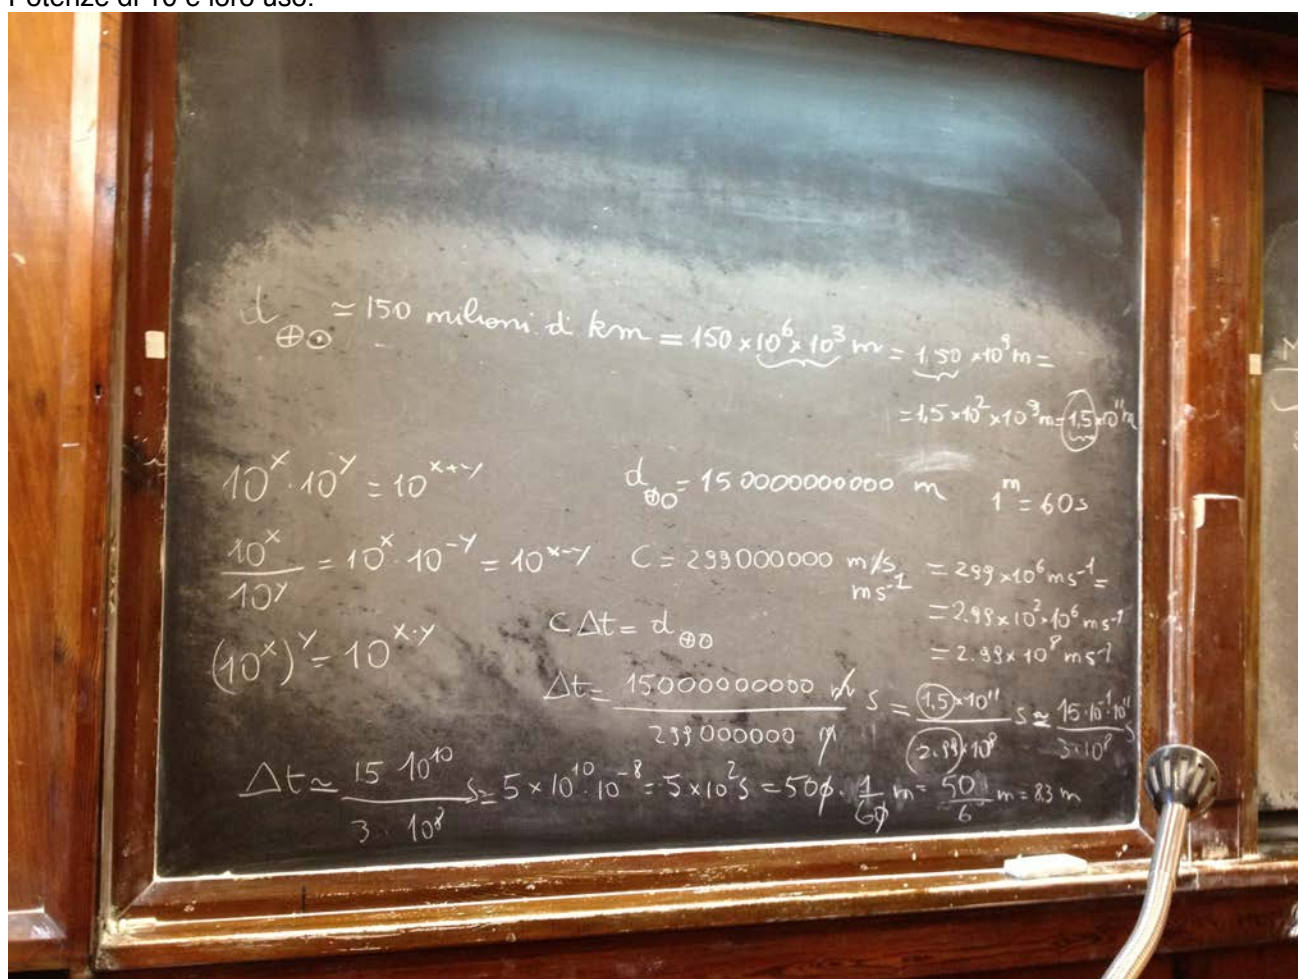 Potenze di 10 e loro uso.
d⊕⊙ ≃ 150 milioni di km = 150 × 10⁶ × 10³ m = 1,50 × 10⁹ m =
= 1,5 × 10² × 10⁹ m = 1,5 × 10¹¹ m
10ˣ · 10ʸ = 10ˣ⁺ʸ
d⊕⊙ = 150000000000 m 1ᵐ = 60s
10ˣ/10ʸ = 10ˣ · 10⁻ʸ = 10ˣ⁻ʸ
C = 299000000 m/s
ms⁻¹
= 299 × 10⁶ ms⁻¹ =
= 2.99 × 10² · 10⁶ ms⁻¹
= 2.99 × 10⁸ ms⁻¹
(10ˣ)ʸ = 10ˣ·ʸ
cΔt = d⊕⊙
Δt = 150000000000 m / 299000000 m s = 1,5 × 10¹¹ / 2.99 × 10⁸ s ≃ 15 · 10⁻¹ · 10¹¹ / 3 · 10⁸ s
Δt ≃ 15 · 10¹⁰ / 3 · 10⁸ s ≃ 5 × 10¹⁰ · 10⁻⁸ = 5 × 10² s = 500 · 1/60 m = 50/6 m = 8.3 m